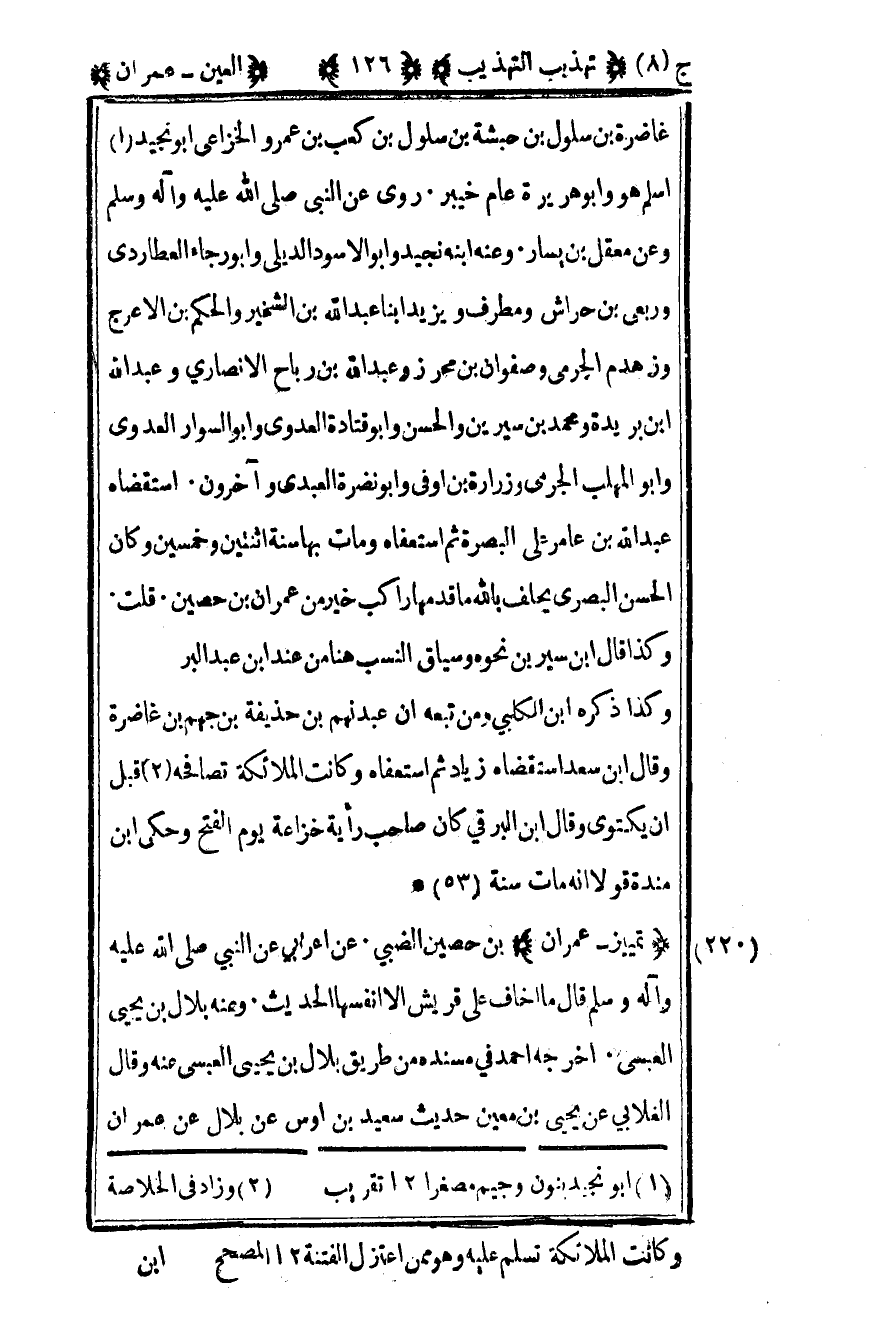 ج (٨) ﴿ تهذيب التهذيب ﴾ ﴿ ١٢٦ ﴾ ﴿ العين ـ عمران ﴾
غاضرة بن سلول بن حبشة بن سلول بن كعب بن عمرو الخزاعى ابو نجيد (١)
اسلم هو وابو هريرة عام خيبر. روى عن النبى صلى الله عليه وآله وسلم
وعن معقل بن يسار. وعنه ابنه نجيد وابو الاسود الديلى وابو رجاء العطاردى
وربعى بن حراش ومطرف ويزيد ابنا عبدالله بن الشخير والحكم بن الاعرج
وزهدم الجرمى وصفوان بن محرز وعبدالله بن رباح الانصاري وعبدالله
ابن بريدة ومحمد بن سيرين والحسن وابو قتادة العدوى وابو السوار العدوى
وابو المهلب الجرمى وزرارة بن اوفى وابو نضرة العبدى وآخرون. استقضاه
عبدالله بن عامر على البصرة ثم استعفاه ومات بها سنة اثنتين وخمسين وكان
الحسن البصرى يحلف بالله ما قدمها راكب خير من عمران بن حصين. قلت.
وكذا قال ابن سيرين نحوه وسياق النسب هنا من عند ابن عبد البر
وكذا ذكره ابن الكلبي ومن تبعه ان عبدنهم بن حذيفة بن جهم بن غاضرة
وقال ابن سعد استقضاه زياد ثم استعفاه وكانت الملائكة تصافحه (٢) قبل
ان يكتوى وقال ابن البرقي كان صاحب رأية خزاعة يوم الفتح وحكى ابن
مندة قولا انه مات سنة (٥٣) •
(٢٢٠) ﴿ تمييز ـ عمران ﴾ بن حصين الضبي. عن اعرابي عن النبي صلى الله عليه
وآله وسلم قال ما اخاف على قريش الا انفسها الحديث. وعنه بلال بن يحيى
العبسى. اخرجه احمد في مسنده من طريق بلال بن يحيى العبسى عنه وقال
الغلابي عن يحيى بن معين حديث سعيد بن اوس عن بلال عن عمران
(١) ابو نجيد بنون وجيم مصغرا ١٢ تقريب (٢) وزاد فى الخلاصة
وكانت الملائكة تسلم عليه وهو ممن اعتزل الفتنة ١٢ المصحح ابن